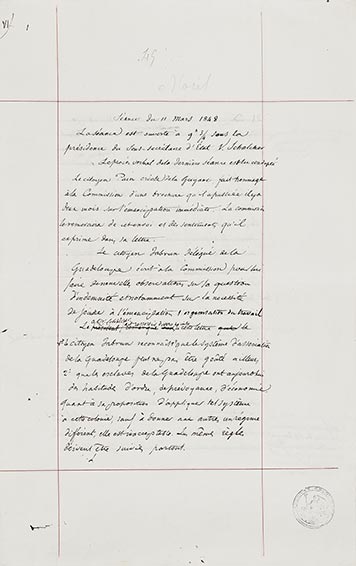 VI
1
Séance du 11 Mars 1848
La séance est ouverte à 9h sous la
présidence du Sous-secrétaire d'État V. Schœlcher
Le procès verbal de la dernière séance est lu et adopté
Le citoyen créole de la Guyane fait hommage
à la Commission d'une brochure qu'il a publiée il y a
deux mois sur l'émancipation immédiate. La commission
le remercie de et des sentiments qu'il
exprime dans sa lettre.
Le citoyen Jabrun Délégué de la
Guadeloupe écrit à la Commission pour lui
faire de nouvelles observations sur la question
d'indemnité et notamment sur la nécessité
de joindre à l'émancipation l'organisation du travail
Le cette lettre que le
citoyen Jabrun reconnaît que le système d'association
de la Guadeloupe peut ne pas être goûté ailleurs,
2° que les esclaves de la Guadeloupe ont aujourd'hui
des habitudes d'ordre, de prévoyance, d'économie
quant à sa proposition d'appliquer tel système
à cette colonie, sauf à donner aux autres un régime
différent, elle est inacceptable. Les mêmes règles
doivent être suivies partout.